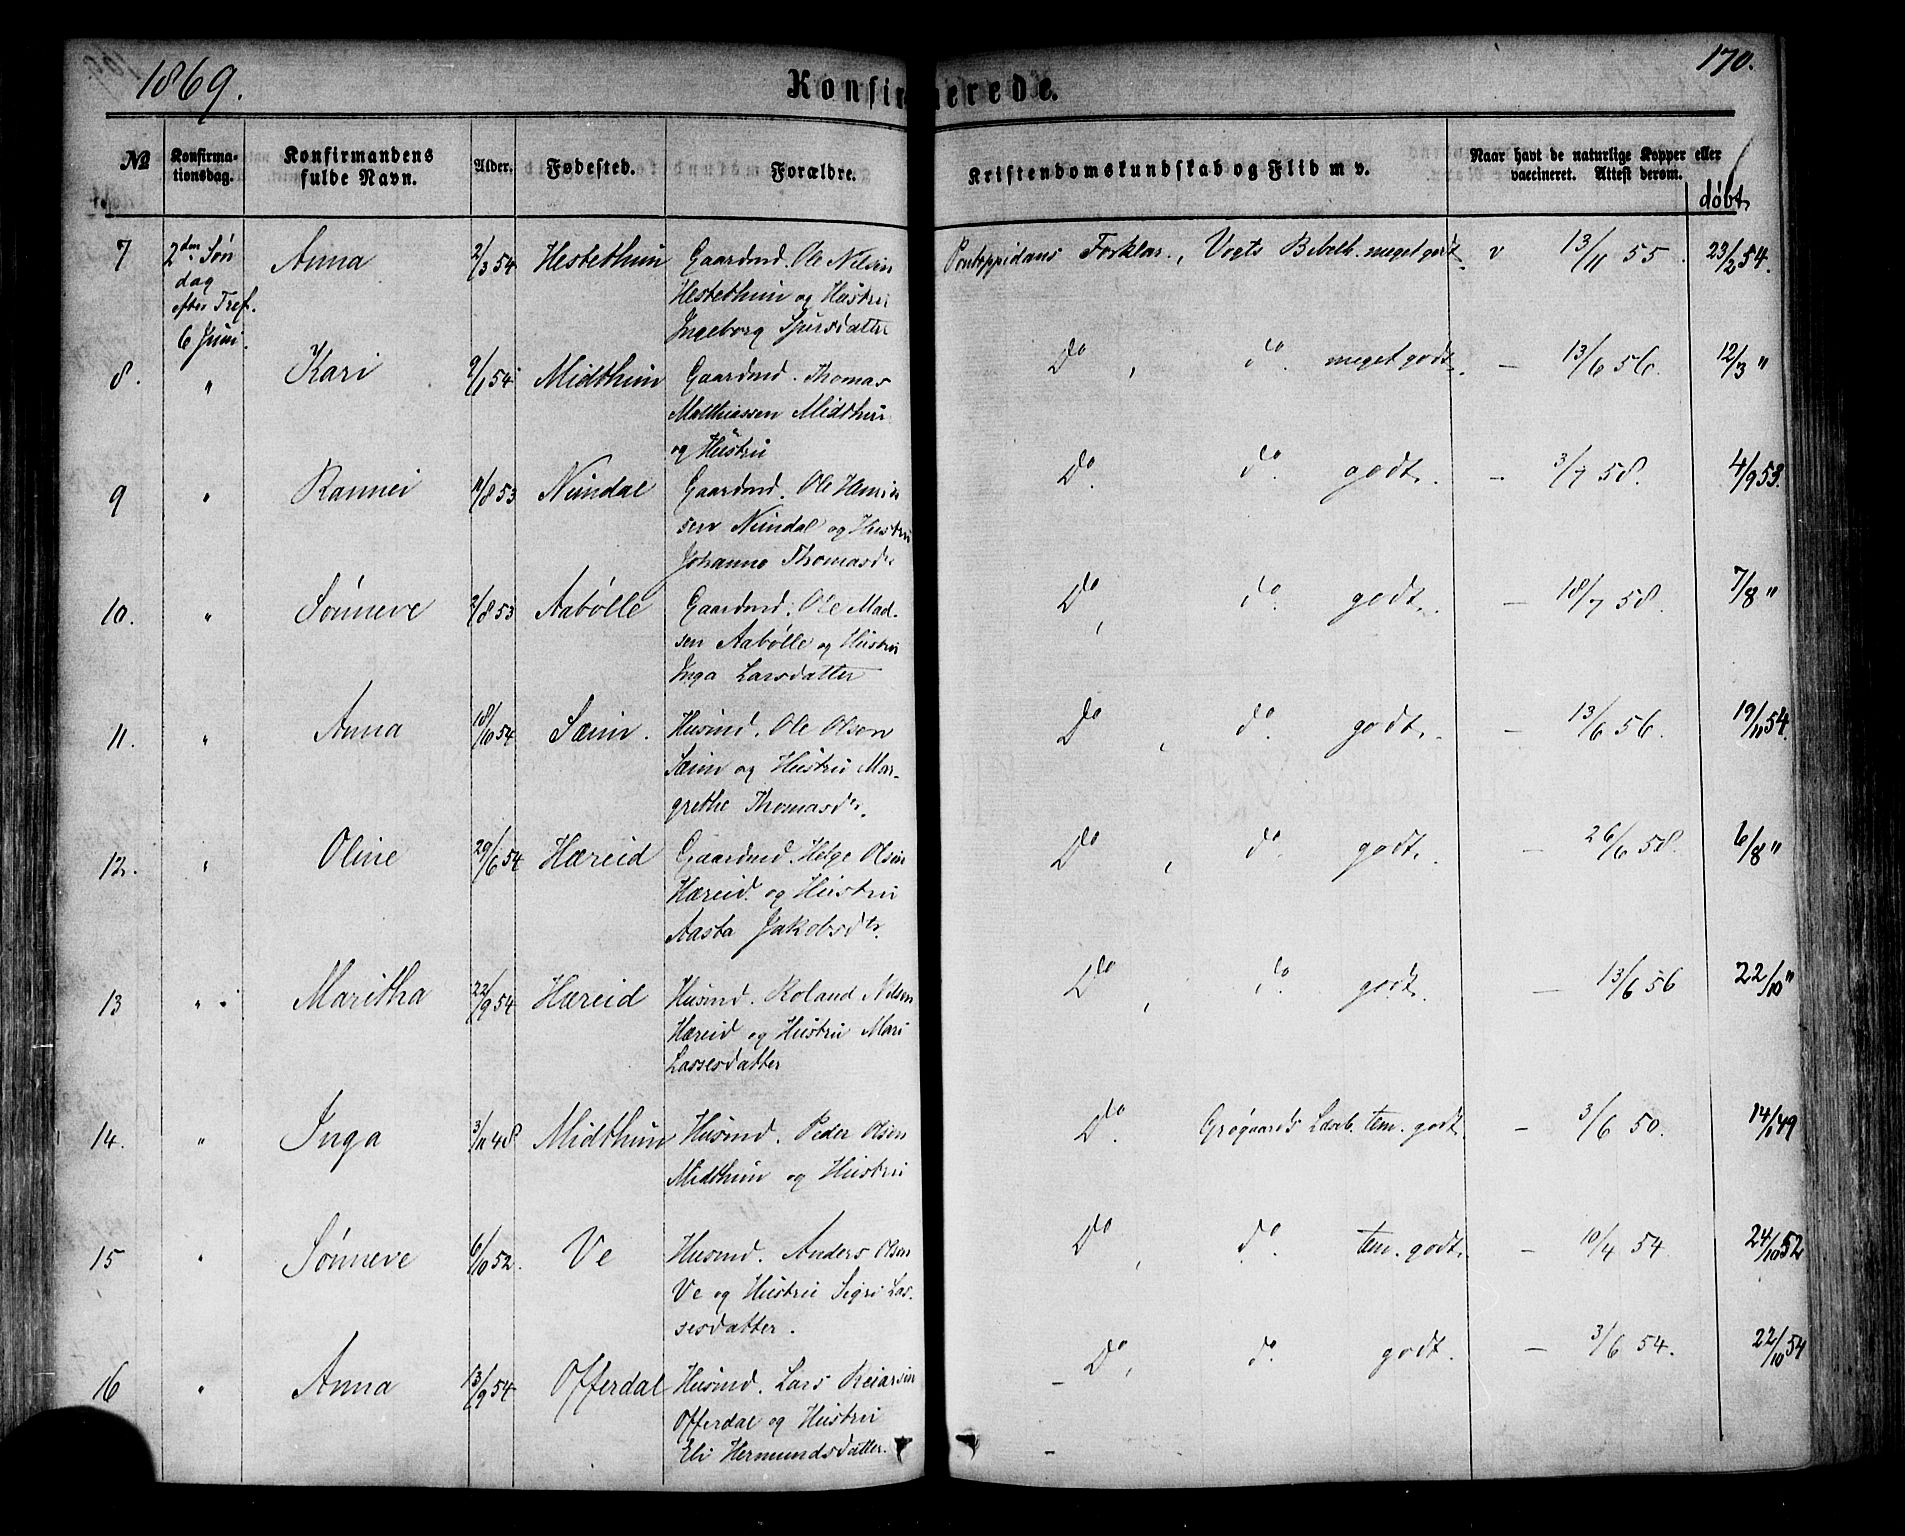 1869.
Konfirmerede.
170.
No
Konfirma-
tionsdag.
Konfirmandens
fulde Navn.
Alder.
Fødested.
Forældre.
Kristendomskundskab og Flid m v.
Naar havt de naturlige Kopper eller
vaccineret. Attest derom.
døbt
7 2den Søn Anna 2/3 54 Hestethun Gaardmd. Ole Nilsen Pontoppidans Forklar., Vogts Bibelh. meget godt. v 13/11 55. 23/2 54.
dag
efter Tref. Hestethun og Hustru
6 Juni. Ingeborg Sjursdatter
8. " Kari 9/1 54 Midthun Gaardmd. Thomas Do, do. meget godt. - 13/6 56. 12/3 "
Matthiassen Midthun
og Hustru
9 " Rannei 11/8 53 Nundal Gaardmd. Ole Henrik Do. do godt. - 3/7 58. 4/9 53.
sen Nundal og Hustru
Johanne Thomasdr
10. " Sønneve 2/8 53 Aabølle Gaardmd. Ole Mad- Do, do. godt. - 18/7 58. 7/8 "
sen Aabølle og Hustru
Inga Larsdatter
11. " Anna 18/10 54 Sæim. Husmd. Ole Olsen Do, do. godt. - 13/6 56. 19/11 54.
Sæim og Hustru Mar-
grethe Thomasdr.
12. " Oline 29/6 54 Hæreid Gaardmd. Helge Olsen Do, do. godt. - 26/6 58. 6/8 "
Hæreid og Hustru
Aasta Jakobsdtr.
13 " " Maritha 22/9 54 Hæreid Husmd. Roland Nilsen Do, do. godt. - 13/6 56 22/10 "
Hæreid og Hustru Mari
Lassesdatter
14. " Inga 3/11 48 Midthun Husmd. Peder Olsen Do. Grøgaards Læseb. tem. godt. - 3/6 50. 14/1 49
Midthun og Hustru
15 " Sønneve 6/10 52. Ve Husmd. Anders Olsen Do, do. tem. godt. - 10/4 54. 24/10 52
Ve og Hustru Sigri Las-
sesdatter.
16 " Anna 13/9 54 Offerdal Husmd. Lars Reiarsen Do, do. godt. - 3/6 54. 22/10 54
Offerdal og Hustru
Eli Hermundsdatter.